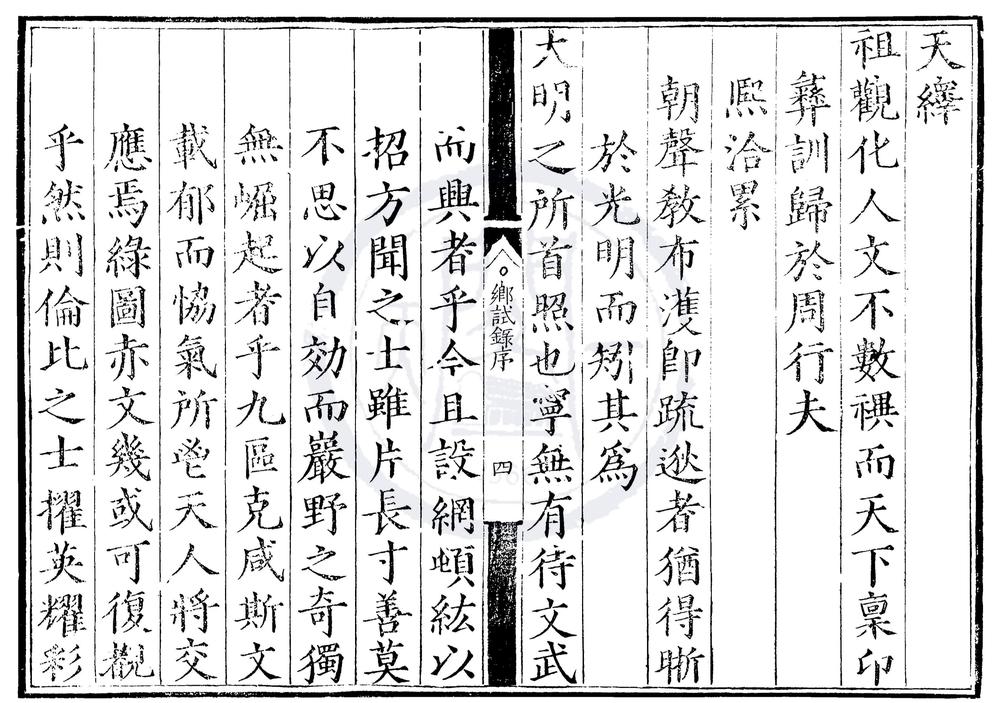 天繹
祖觀化人文不數禩而天下稟卬
彝訓歸於周行夫
熈洽累
朝聲敎布濩卽疏逖者猶得晣
於光明而矧其爲
大明之所首照也寧無有待文武
鄉試錄序
四
而興者乎今且設網頓紘以
招方聞之士雖片長寸善莫
不思以自効而巖野之奇獨
無崛起者乎九區克咸斯文
載郁而恊氣所鬯天人將交
應焉綠圖赤文幾或可復觀
乎然則倫比之士擢英耀彩